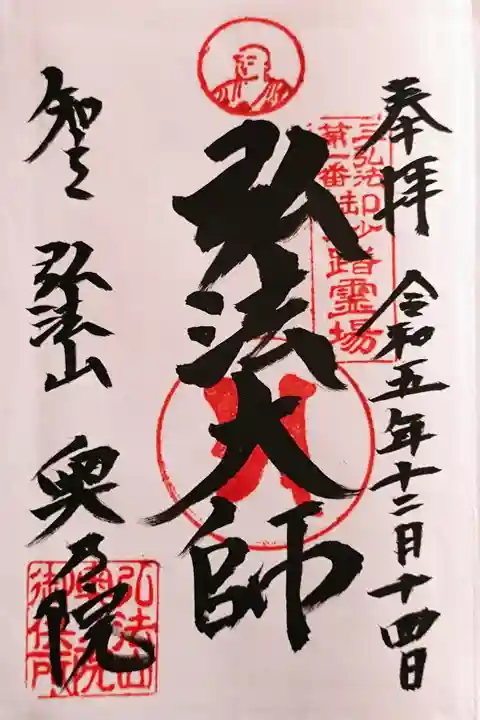 奉拝
令和五年十二月十四日
三弘法
第一番
踏霊場
弘法大師
知立
弘法山
奥乃院
弘法山
御住所